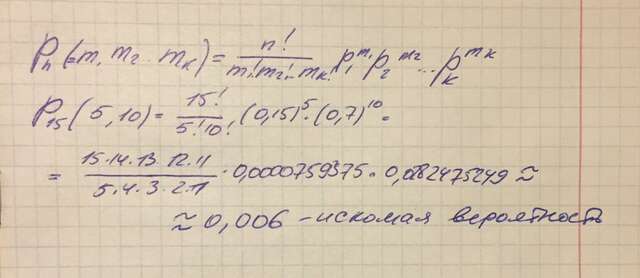 Pn(=m₁ m₂ .. mк) = n! / m₁! m₂!..mк! p₁^m₁ p₂^m₂ ... pк^mк
P₁₅(5,10) = 15! / 5! 10! (0,15)⁵ · (0,7)¹⁰ =
= 15·14·13·12·11 / 5·4·3·2·1 · 0,0000759375 · 0,0282475249 ≈
≈ 0,006 - искомая вероятность